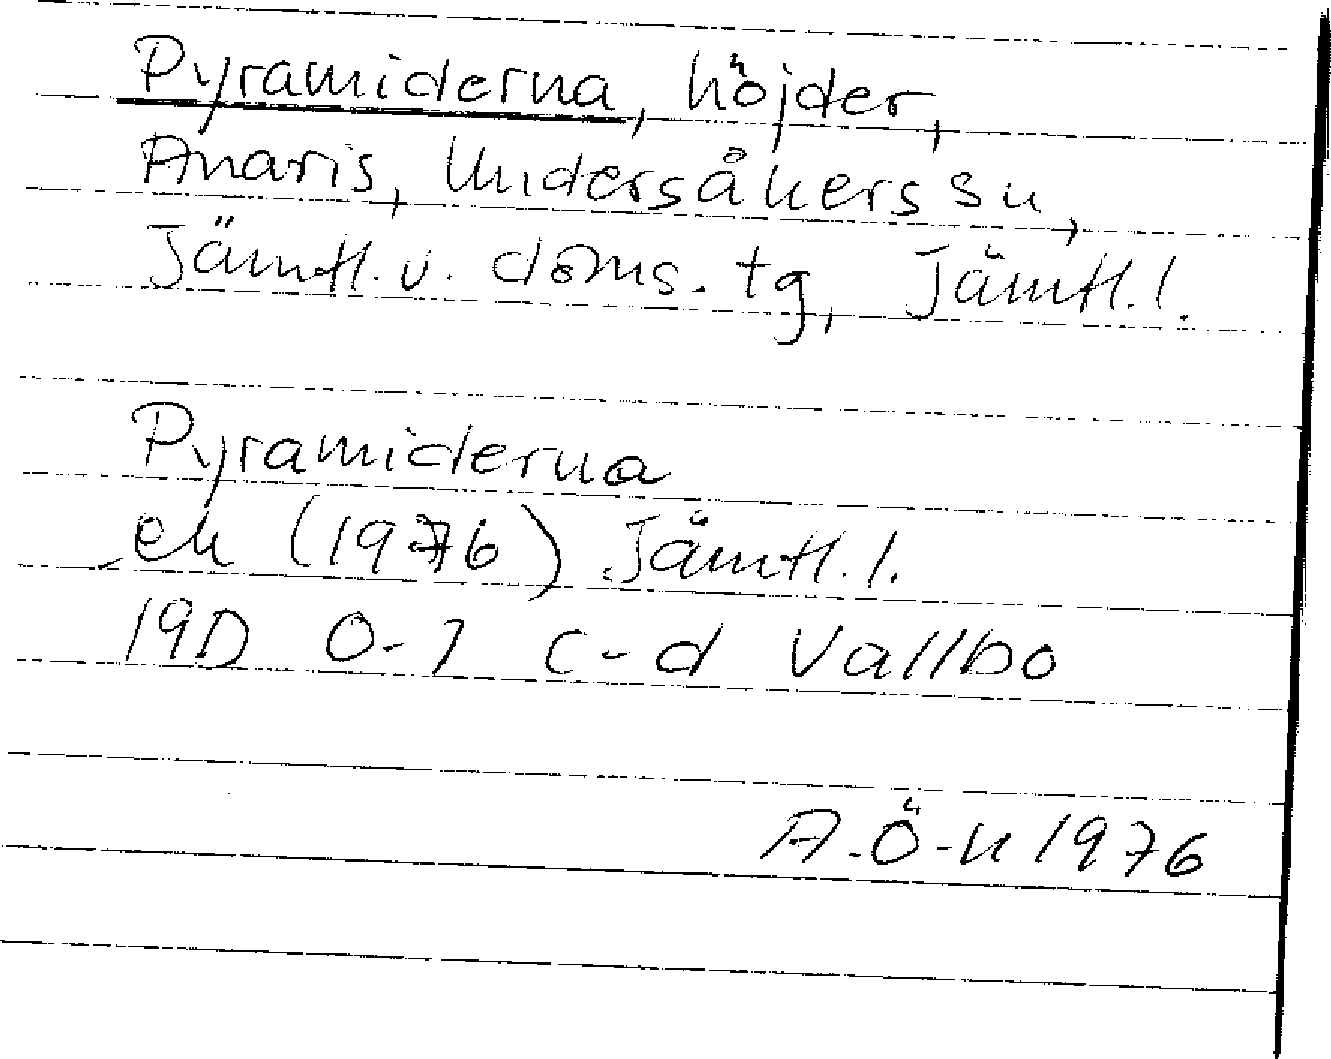 Pyramiderna, höjder,
Anaris, Undersåkers sn,
Jämtl. v. doms. tg, Jämtl. l.
Pyramiderna
ek (1976) Jämtl. l.
19D 0-1 c-d Vallbo
A. Ö-n 1976